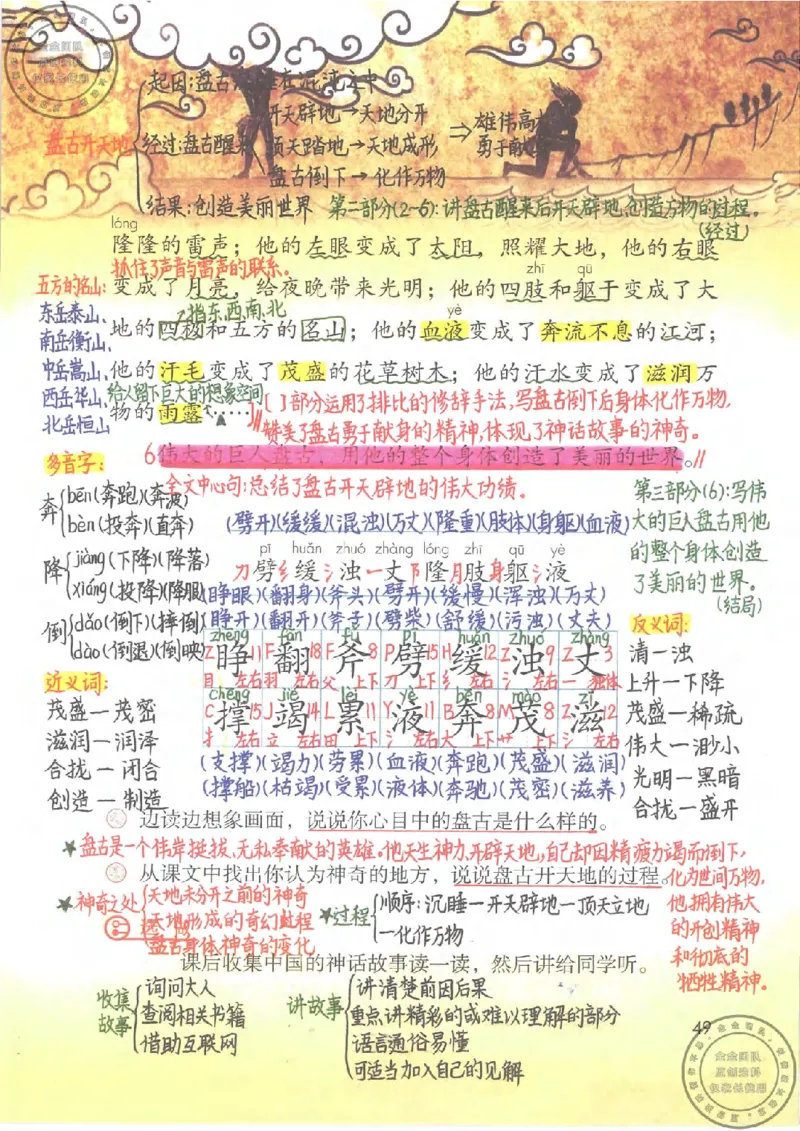 起因:盘古沉睡在混沌之中
盘古开天地
经过:盘古醒来
开天辟地→天地分开
顶天踏地→天地成形
盘古倒下→化作万物
⇒雄伟高大
勇于献身
结果:创造美丽世界 第二部分(2~5):讲盘古醒来后开天辟地、创造万物的过程。
(经过)
lóng
隆隆的雷声；他的左眼变成了太阳，照耀大地，他的右眼
抓住了声音与雷声的联系。
zhī qū
变成了月亮，给夜晚带来光明；他的四肢和躯干变成了大
指东、西、南、北
yè
地的四极和五方的名山；他的血液变成了奔流不息的江河；
他的汗毛变成了茂盛的花草树木；他的汗水变成了滋润万
给人留下巨大的想象空间
物的雨露……
五方的名山:
东岳泰山、
南岳衡山、
中岳嵩山、
西岳华山、
北岳恒山
〔 〕部分运用了排比的修辞手法,写盘古倒下后身体化作万物,
赞美了盘古勇于献身的精神,体现了神话故事的神奇。
6伟大的巨人盘古，用他的整个身体创造了美丽的世界。
全文中心句:总结了盘古开天辟地的伟大功绩。
第三部分(6):写伟
大的巨人盘古用他
的整个身体创造
了美丽的世界。
(结局)
多音字:
奔 bēn(奔跑)(奔波)
bèn(投奔)(直奔)
降 jiàng(下降)(降落)
xiáng(投降)(降服)
倒 dǎo(倒下)(摔倒)
dào(倒退)(倒映)
(劈开)(缓缓)(混浊)(万丈)(隆重)(肢体)(身躯)(血液)
pī huǎn zhuó zhàng lóng zhī qū yè
刀劈 纟缓 氵浊 一丈 阝隆 月肢 身躯 氵液
(睁眼)(翻身)(斧头)(劈开)(缓慢)(浑浊)(万丈)
(睁开)(翻开)(斧子)(劈柴)(舒缓)(污浊)(丈夫)
zhēng fān fǔ pī huǎn zhuó zhàng
Z睁11 F翻18 F斧8 P劈15 H缓12 Z浊9 Z丈3
目 左右 羽 左右 父 上下 刀 上下 纟 左右 氵 左右 一 独体
chēng jié lèi yè bēn mào zī
C撑15 J竭14 L累11 Y液11 B奔8 M茂8 Z滋12
扌 左右 立 左右 田 上下 氵 左右 大 上下 艹 上下 氵 左右
(支撑)(竭力)(劳累)(血液)(奔跑)(茂盛)(滋润)
(撑船)(枯竭)(受累)(液体)(奔驰)(茂密)(滋养)
近义词:
茂盛—茂密
滋润—润泽
合拢—闭合
创造—制造
反义词:
清—浊
上升—下降
茂盛—稀疏
伟大—渺小
光明—黑暗
合拢—盛开
边读边想象画面，说说你心目中的盘古是什么样的。
★盘古是一个伟岸挺拔、无私奉献的英雄。他天生神力,开辟天地,自己却因精疲力竭而倒下,
从课文中找出你认为神奇的地方，说说盘古开天地的过程。
化为世间万物,
他拥有伟大
的开创精神
和彻底的
牺牲精神。
★神奇之处
天地未分开之前的神奇
天地形成的奇幻过程
盘古身体神奇的变化
★过程
顺序:沉睡—开天辟地—顶天立地
—化作万物
课后收集中国的神话故事读一读，然后讲给同学听。
收集故事
询问大人
查阅相关书籍
借助互联网
讲故事
讲清楚前因后果
重点讲精彩的或难以理解的部分
语言通俗易懂
可适当加入自己的见解
49